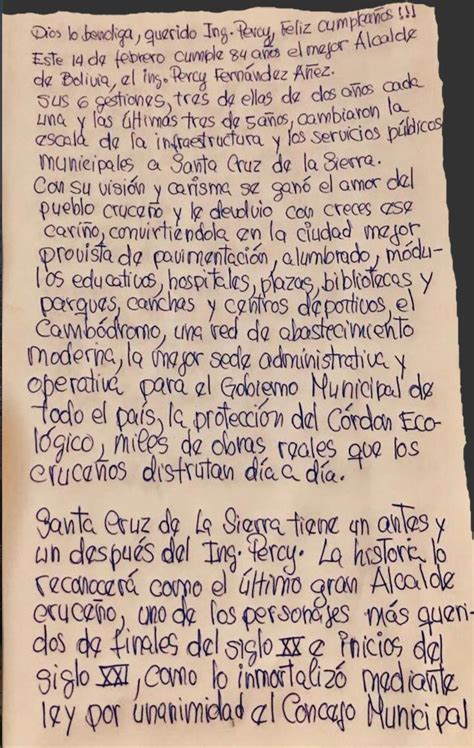 Dios lo bendiga, querido Ing. Percy, Feliz Cumpleaños !!!
Este 14 de febrero cumple 84 años el mejor Alcalde
de Bolivia, el ing. Percy Fernández Añez.
Sus 6 gestiones, tres de ellas de dos años cada
una y las últimas tres de 5 años, cambiaron la
escala de la infraestructura y los servicios públicos
municipales a Santa Cruz de la Sierra.
Con su visión y carisma se ganó el amor del
pueblo cruceño y le devolvio con creces ese
cariño, convirtiéndola en la ciudad mejor
provista de pavimentación, alumbrado, módu-
los educativos, hospitales, plazas, bibliotecas y
parques, canchas y centros deportivos, el
Cambódromo, una red de abastecimiento
moderna, la mejor sede administrativa y
operativa para el Gobierno Municipal de
todo el país, la protección del Córdon Eco-
lógico, miles de obras reales que los
cruceños disfrutan día a día.
Santa Cruz de La Sierra tiene un antes y
un después del Ing. Percy. La historia lo
reconocerá como el último gran Alcalde
cruceño, uno de los personajes más queri-
dos de finales del siglo XX e inicios del
siglo XXI, como lo inmortalizó mediante
ley por unanimidad el Concejo Municipal